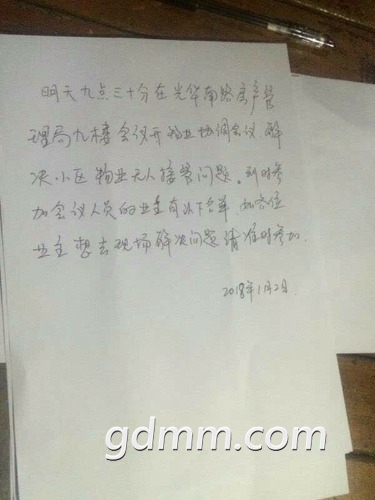 明天九点三十分在光华南路房产管
理局九楼会议开物业协调会议 解
决小区物业无人接管问题。到时参
加会议人员的业主有以下名单 如各位
业主想去现场解决问题请准时参加.
2018年1月2日.
gdmm.com